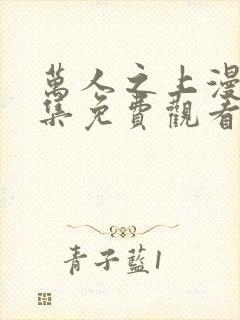 萬人之上漫
集免費觀看
青子藍1